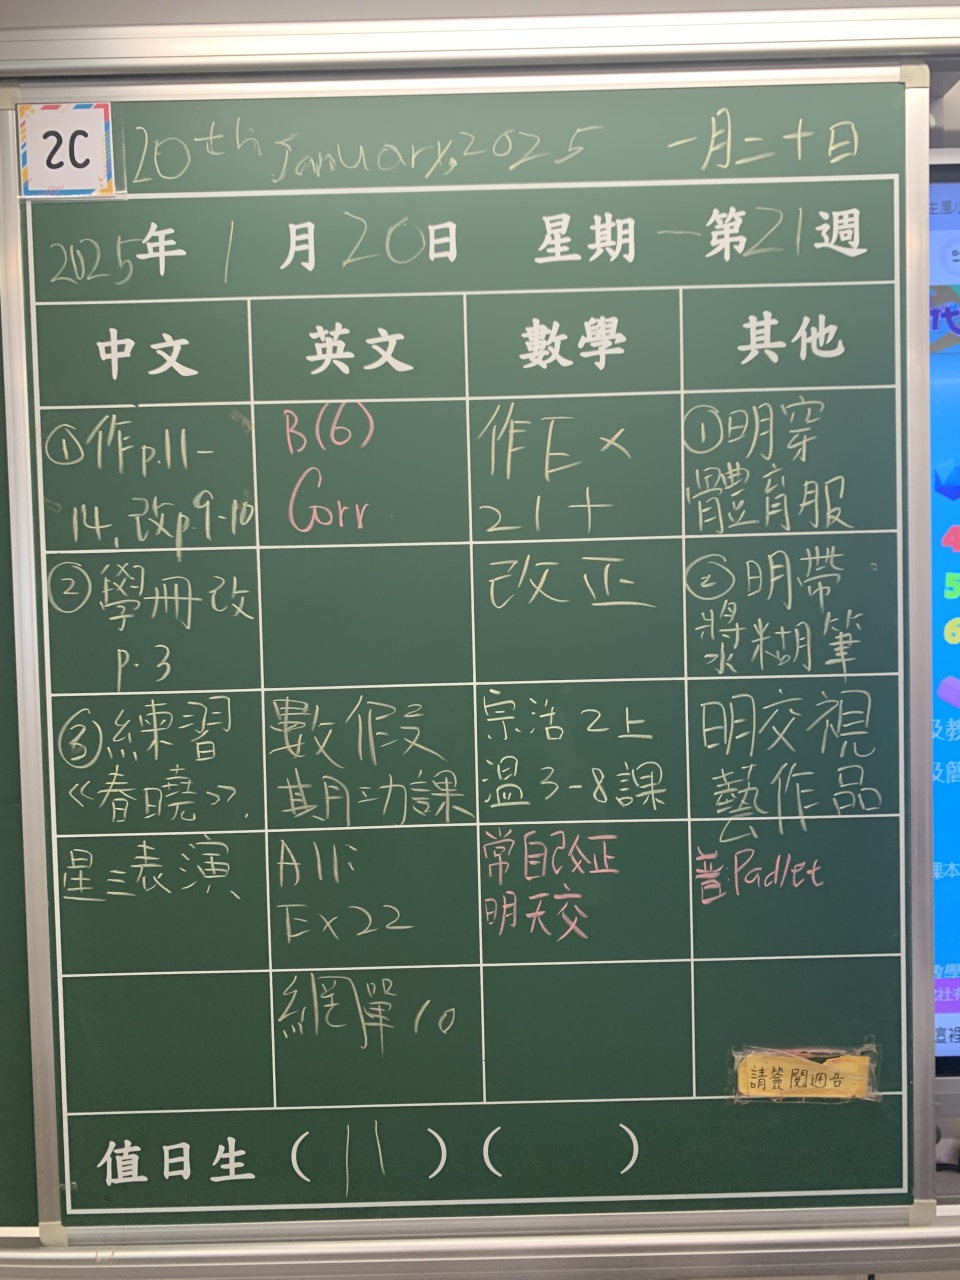 2C
20th January, 2025 一月二十日
2025年1月20日 星期一第21週
中文
英文
數學
其他
①作p.11-
14,改p.9-10
B(6)
Corr
作Ex
21+
①明穿
體育服
②學冊改
p.3
改正
②明帶
漿糊筆
③練習
《春曉》.
數假
期功課
宗活2上
溫3-8課
明交視
藝作品
星三表演
All:
Ex22
常自改正
明天交
普:Padlet
網單10
請簽閱通告
值日生(11)( )
4
5
6
課本
這裡